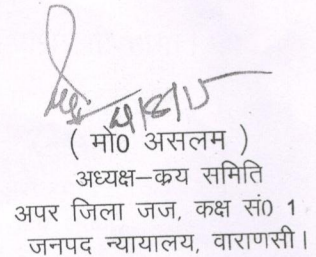 ( मो0 असलम )
अध्यक्ष–कय समिति
अपर जिला जज, कक्ष सं0 1
जनपद न्यायालय, वाराणसी।